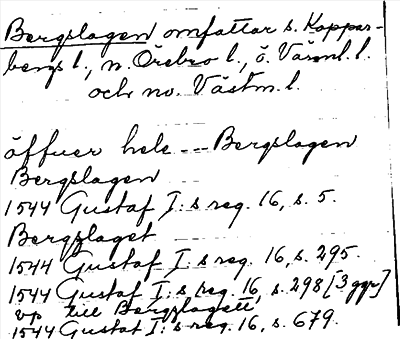 Bergslagen omfattar s. Koppar-
bergs l., n. Örebro l., ö. Värml. l.
och nv. Västm. l.
äffuer hele --- Bergslagen
Bergslagen
1544 Gustaf I:s reg. 16, s. 5.
Bergzlaget
1544 Gustaf I:s reg. 16, s. 295.
1544 Gustaf I:s reg. 16, s. 298 [3 ggr]
vp till Bergzlagett
1544 Gustaf I:s reg. 16, s. 679.